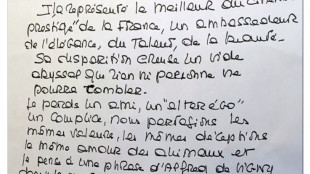 Il a représenté le meilleur du
prestige" de la France, un ambassadeur
de l'élégance, du talent, de la beauté.
Sa disparition creuse un vide
abyssal que rien ni personne ne
pourra combler.
Je perds un ami, un "alter égo"
un complice, nous partagions les
mêmes valeurs, les mêmes déceptions
le même amour des animaux et
je pense à une phrase d'Alfred de Vigny